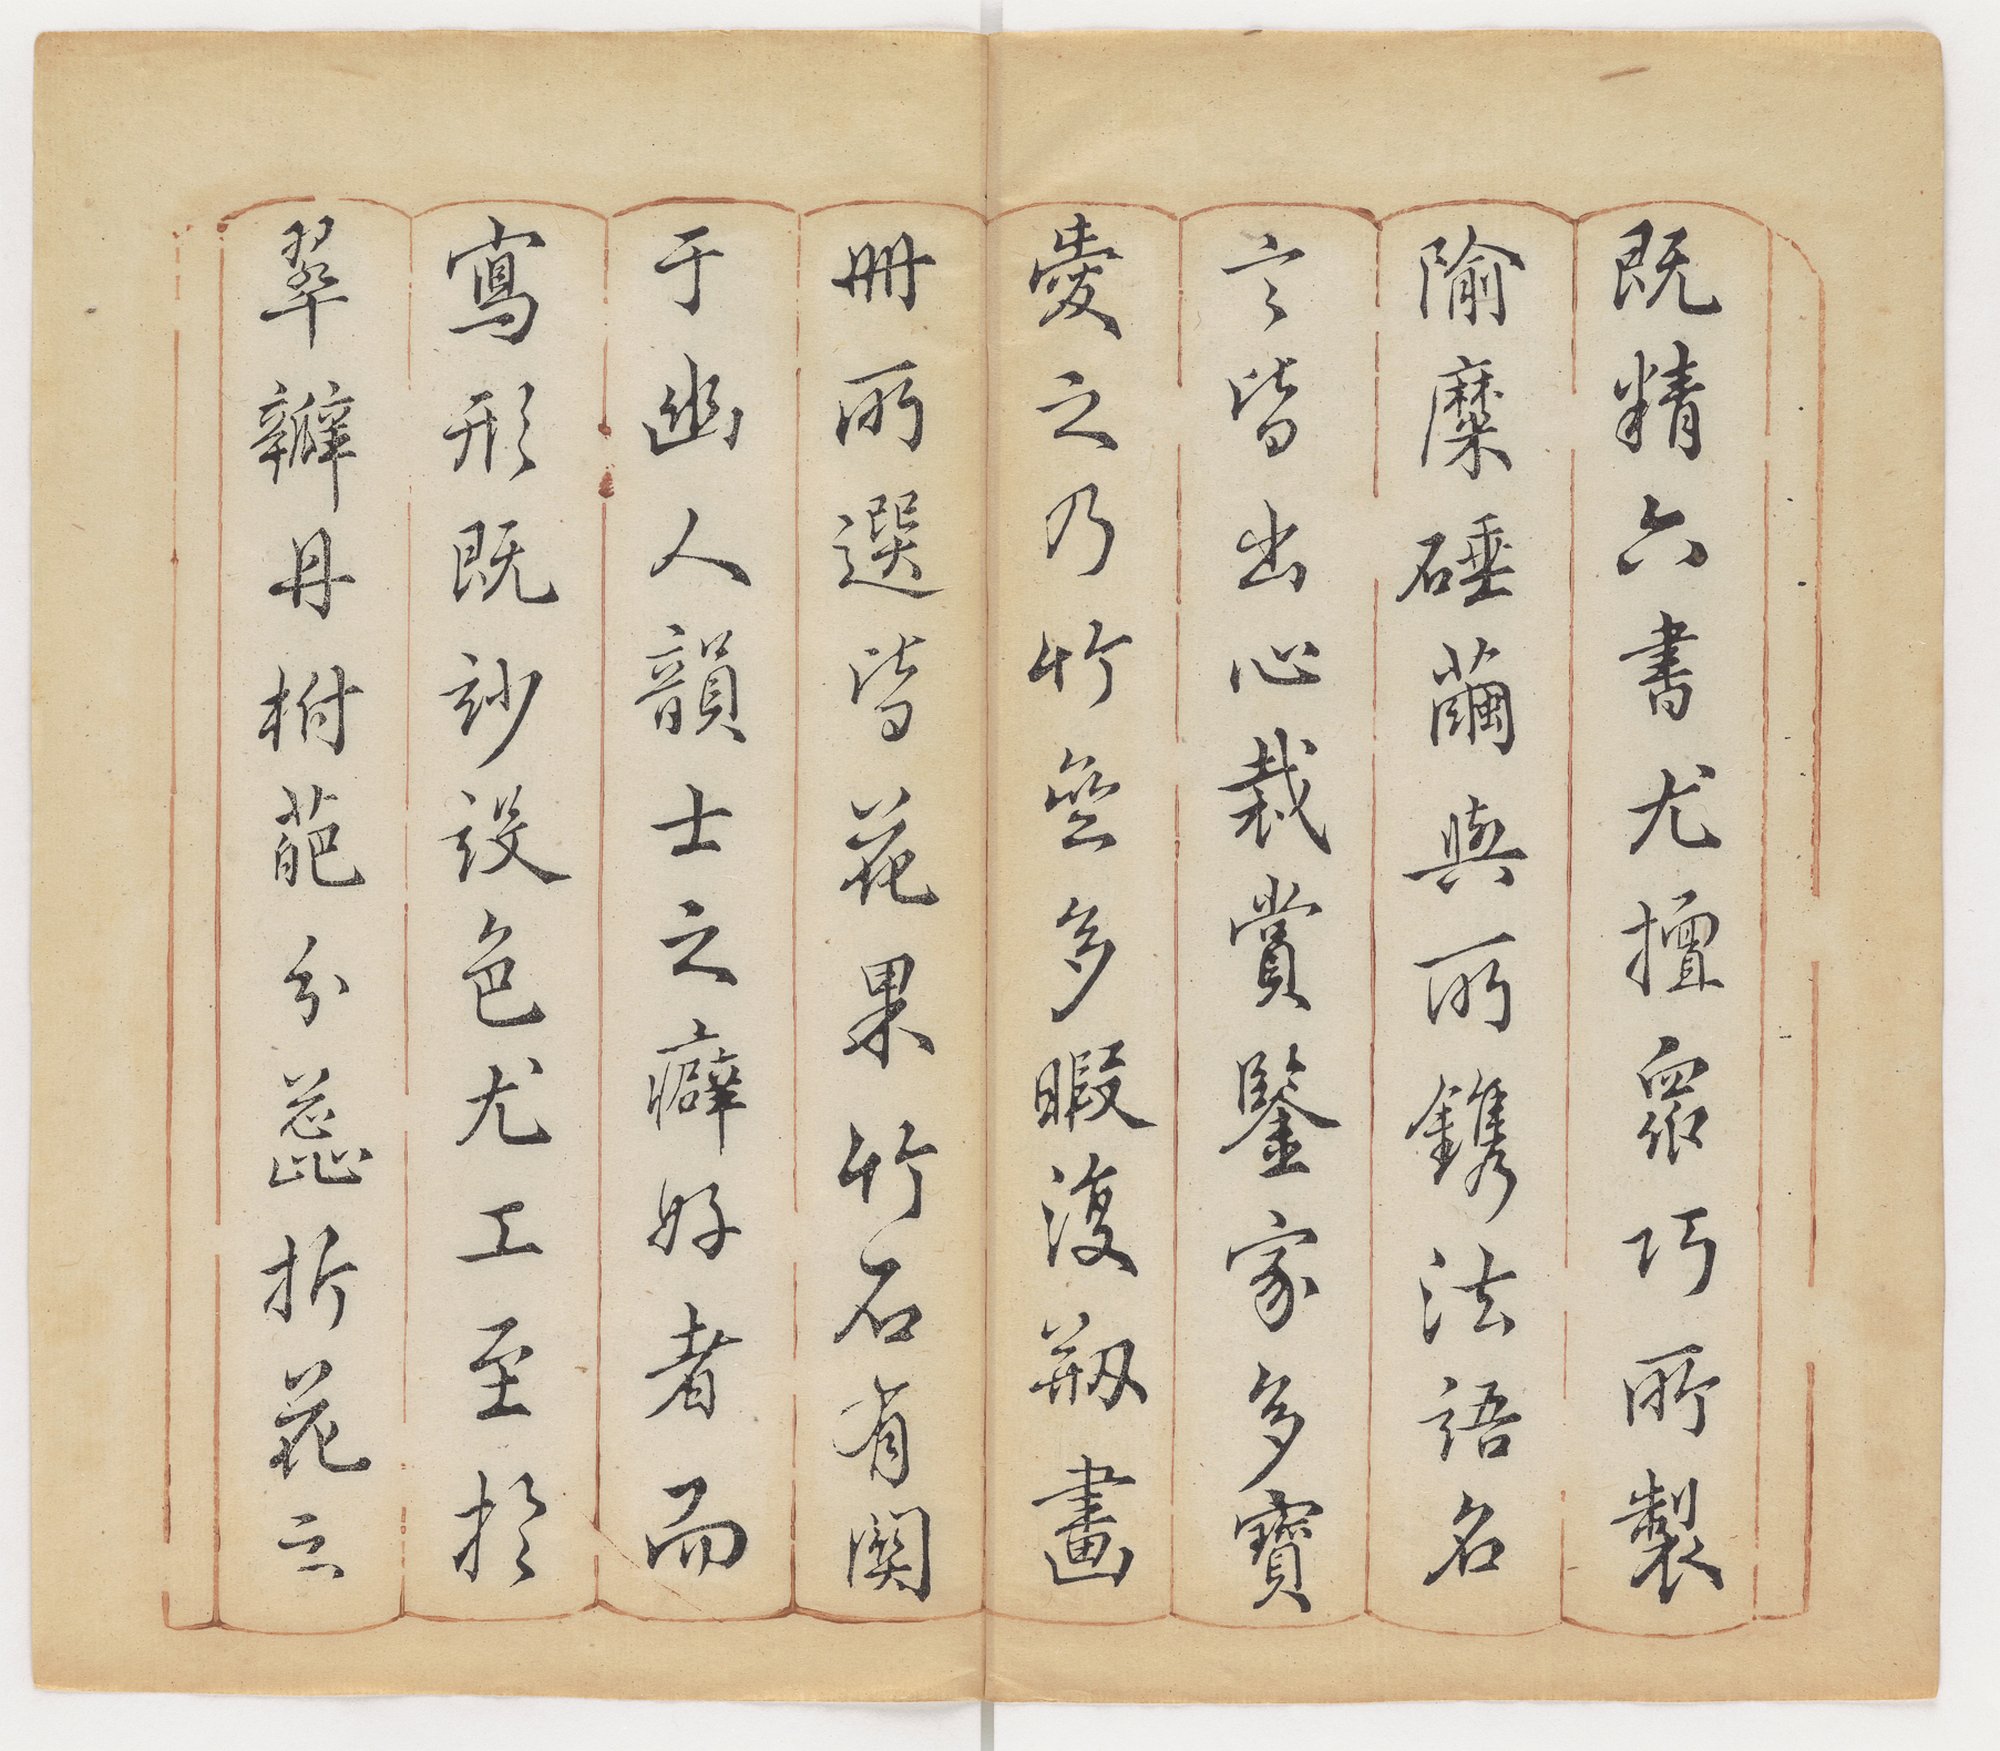 既精六書尤擅衆巧所製
隃糜硾繭與所鐫法語名
言皆出心裁賞鑒家多寶
愛之乃竹齋多暇復剏畫
冊所選皆花果竹石有関
于幽人韻士之癖好者而
寫形既玅設色尤工至於
翠瓣丹柎葩分蕊折花之